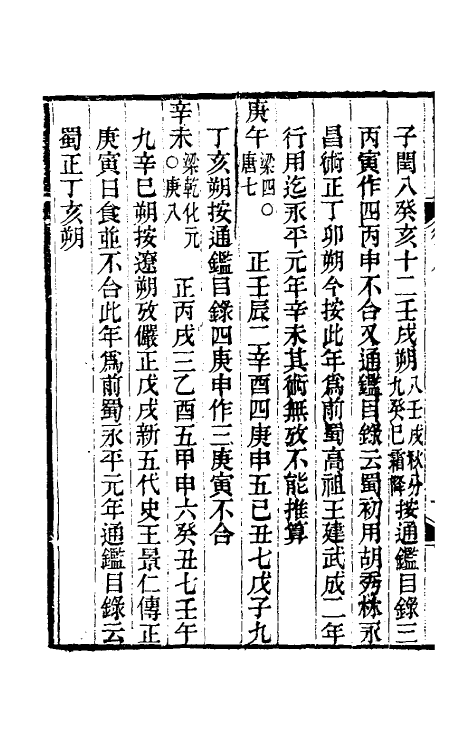 子閏八癸亥十二壬戌朔八壬戌秋分九癸巳霜降按通鑑目錄三
丙寅作四丙申不合又通鑑目錄云蜀初用胡秀林永
昌術正丁卯朔今按此年爲前蜀高祖王建武成二年
行用迄永平元年辛未其術無攷不能推算
庚午梁四〇唐七　正壬辰二辛酉四庚申五己丑七戊子九
丁亥朔按通鑑目錄四庚申作三庚寅不合
辛未梁乾化元〇唐八　正丙戌三乙酉五甲申六癸丑七壬午
九辛巳朔按遼朔攷儼正戊戌新五代史王景仁傳正
庚寅日食並不合此年爲前蜀永平元年通鑑目錄云
蜀正丁亥朔